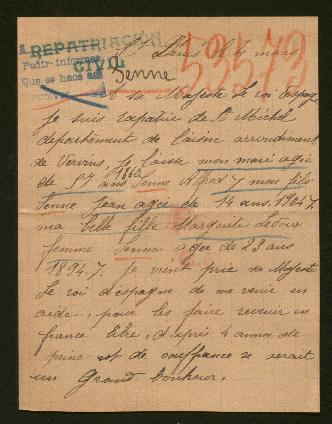 REPATRIACIÓN
CIVIL
Pedir informes
Que se hace
53573
St Denis le 4 mars
Senne
a sa Majeste le roi espagne
Je suis rapatrie de St Michel
departement de l'aisne arrondiment
de Vervins, Je laisse mon mari agee
de 57 ans 1860 Senne Alfred 7 mon fils
Senne Jean agee de 14 ans. 1904 7
ma belle fille Margerite Ledoux
femme Senne agee de 23 ans
1894. 7. Je vient prie sa Majeste
le roi d'espagne de me venir en
aide, pour les faire revenir en
france libre, d'après 4 annes de
peine est de souffrance se serait
un Grand bonheur.